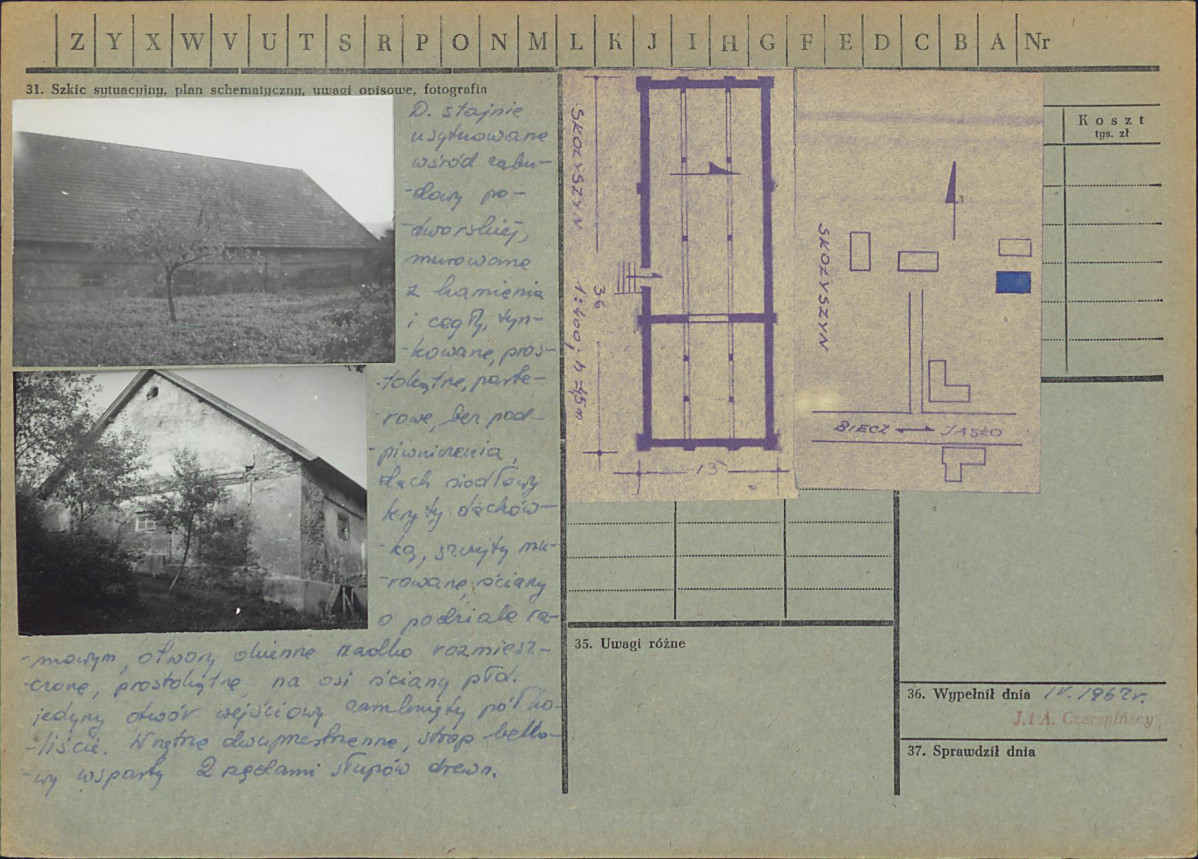 Z Y X W V U T S R P O N M L K J I H G F E D C B A Nr
31. Szkic sytuacyjny, plan schematyczny, uwagi opisowe, fotografia
D. stajnie
usytuowane
wśród zabu-
-dowy po-
-dworskiej,
murowane
z kamienia
i cegły, tyn-
-kowane, pros-
-tokątne, parte-
-rowe, bez pod-
-piwniczenia,
dach siodłowy
kryty dachów-
-ką, szczyty mu-
-rowane, ściany
o podziale ra-
-mowym, otwory okienne rzadko rozmiesz-
-czone, prostokątne, na osi ściany płd.
jedyny otwór wejściowy zamknięty półko-
-liście. Wnętrze dwuprzestrzenne, strop belko-
-wy wsparty 2 rzędami słupów drewn.
SKOŁYSZYN 1:400; h=4,5m
36
13
SKOŁYSZYN
BIECZ JASŁO
Koszt
tys. zł
35. Uwagi różne
36. Wypełnił dnia IV. 1962r.
J. i A. Czerepińscy
37. Sprawdził dnia